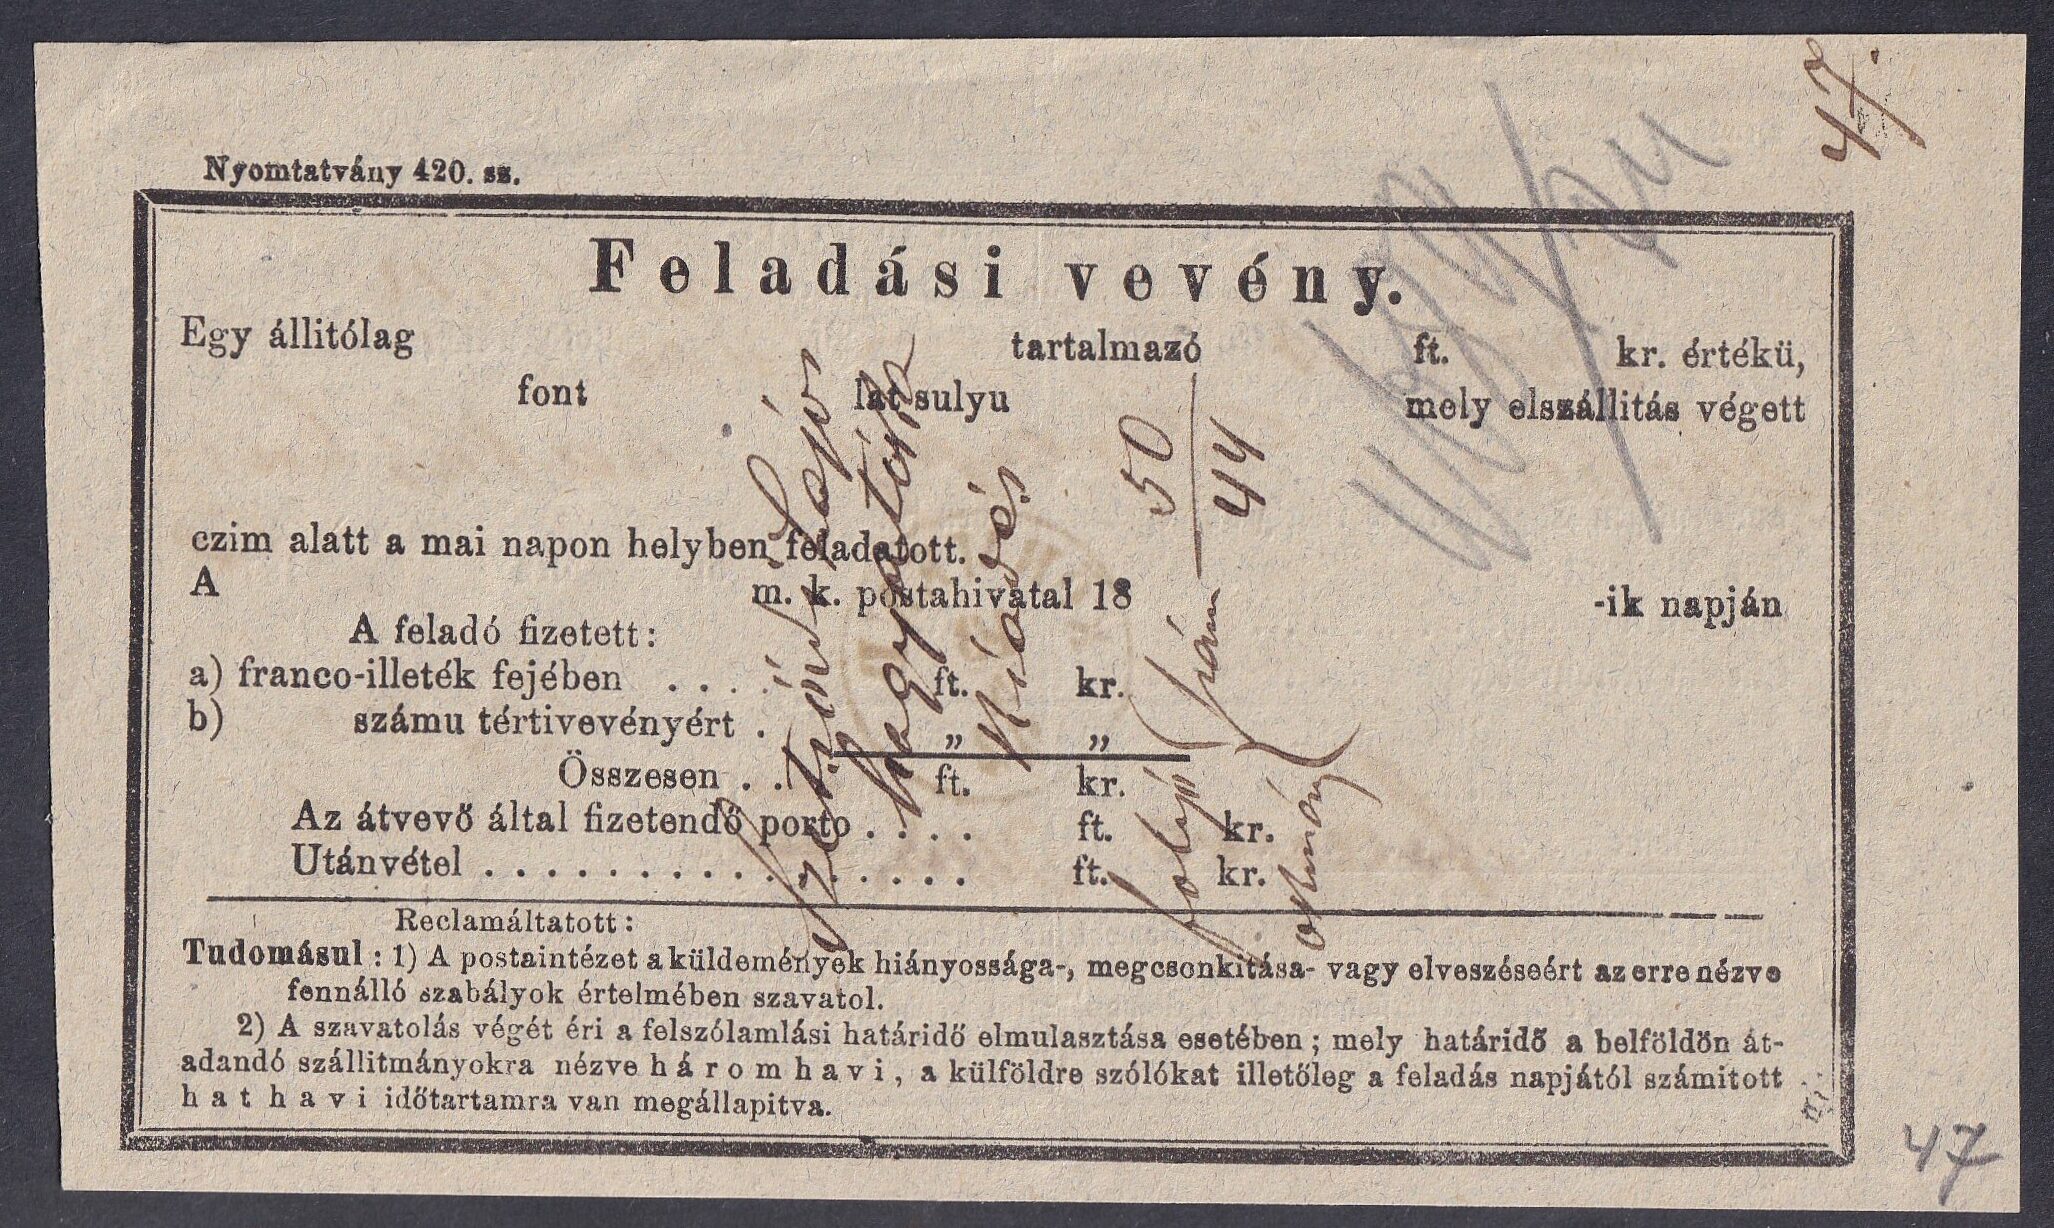 47.
Nyomtatvány 420. sz.
Feladási vevény.
Egy állitólag tartalmazó ft. kr. értékü,
font lat sulyu mely elszállitás végett
czim alatt a mai napon helyben feladatott.
A m. k. postahivatal 18 -ik napján
A feladó fizetett:
a) franco-illeték fejében . . . . ft. kr.
b) számu tértivevényért . „ „
Összesen . . ft. kr.
Az átvevő által fizetendő porto . . . . ft. kr.
Utánvétel . . . . . . . . . . . . . . . . ft. kr.
Reclamáltatott:
Tudomásul: 1) A postaintézet a küldemények hiányossága-, megcsonkitása- vagy elveszéseért az erre nézve
fennálló szabályok értelmében szavatol.
2) A szavatolás végét éri a felszólamlási határidő elmulasztása esetében; mely határidő a belföldön át-
adandó szállitmányokra nézve háromhavi, a külföldre szólókat illetőleg a feladás napjától számitott
hathavi időtartamra van megállapitva.
Lajos
50
44
47